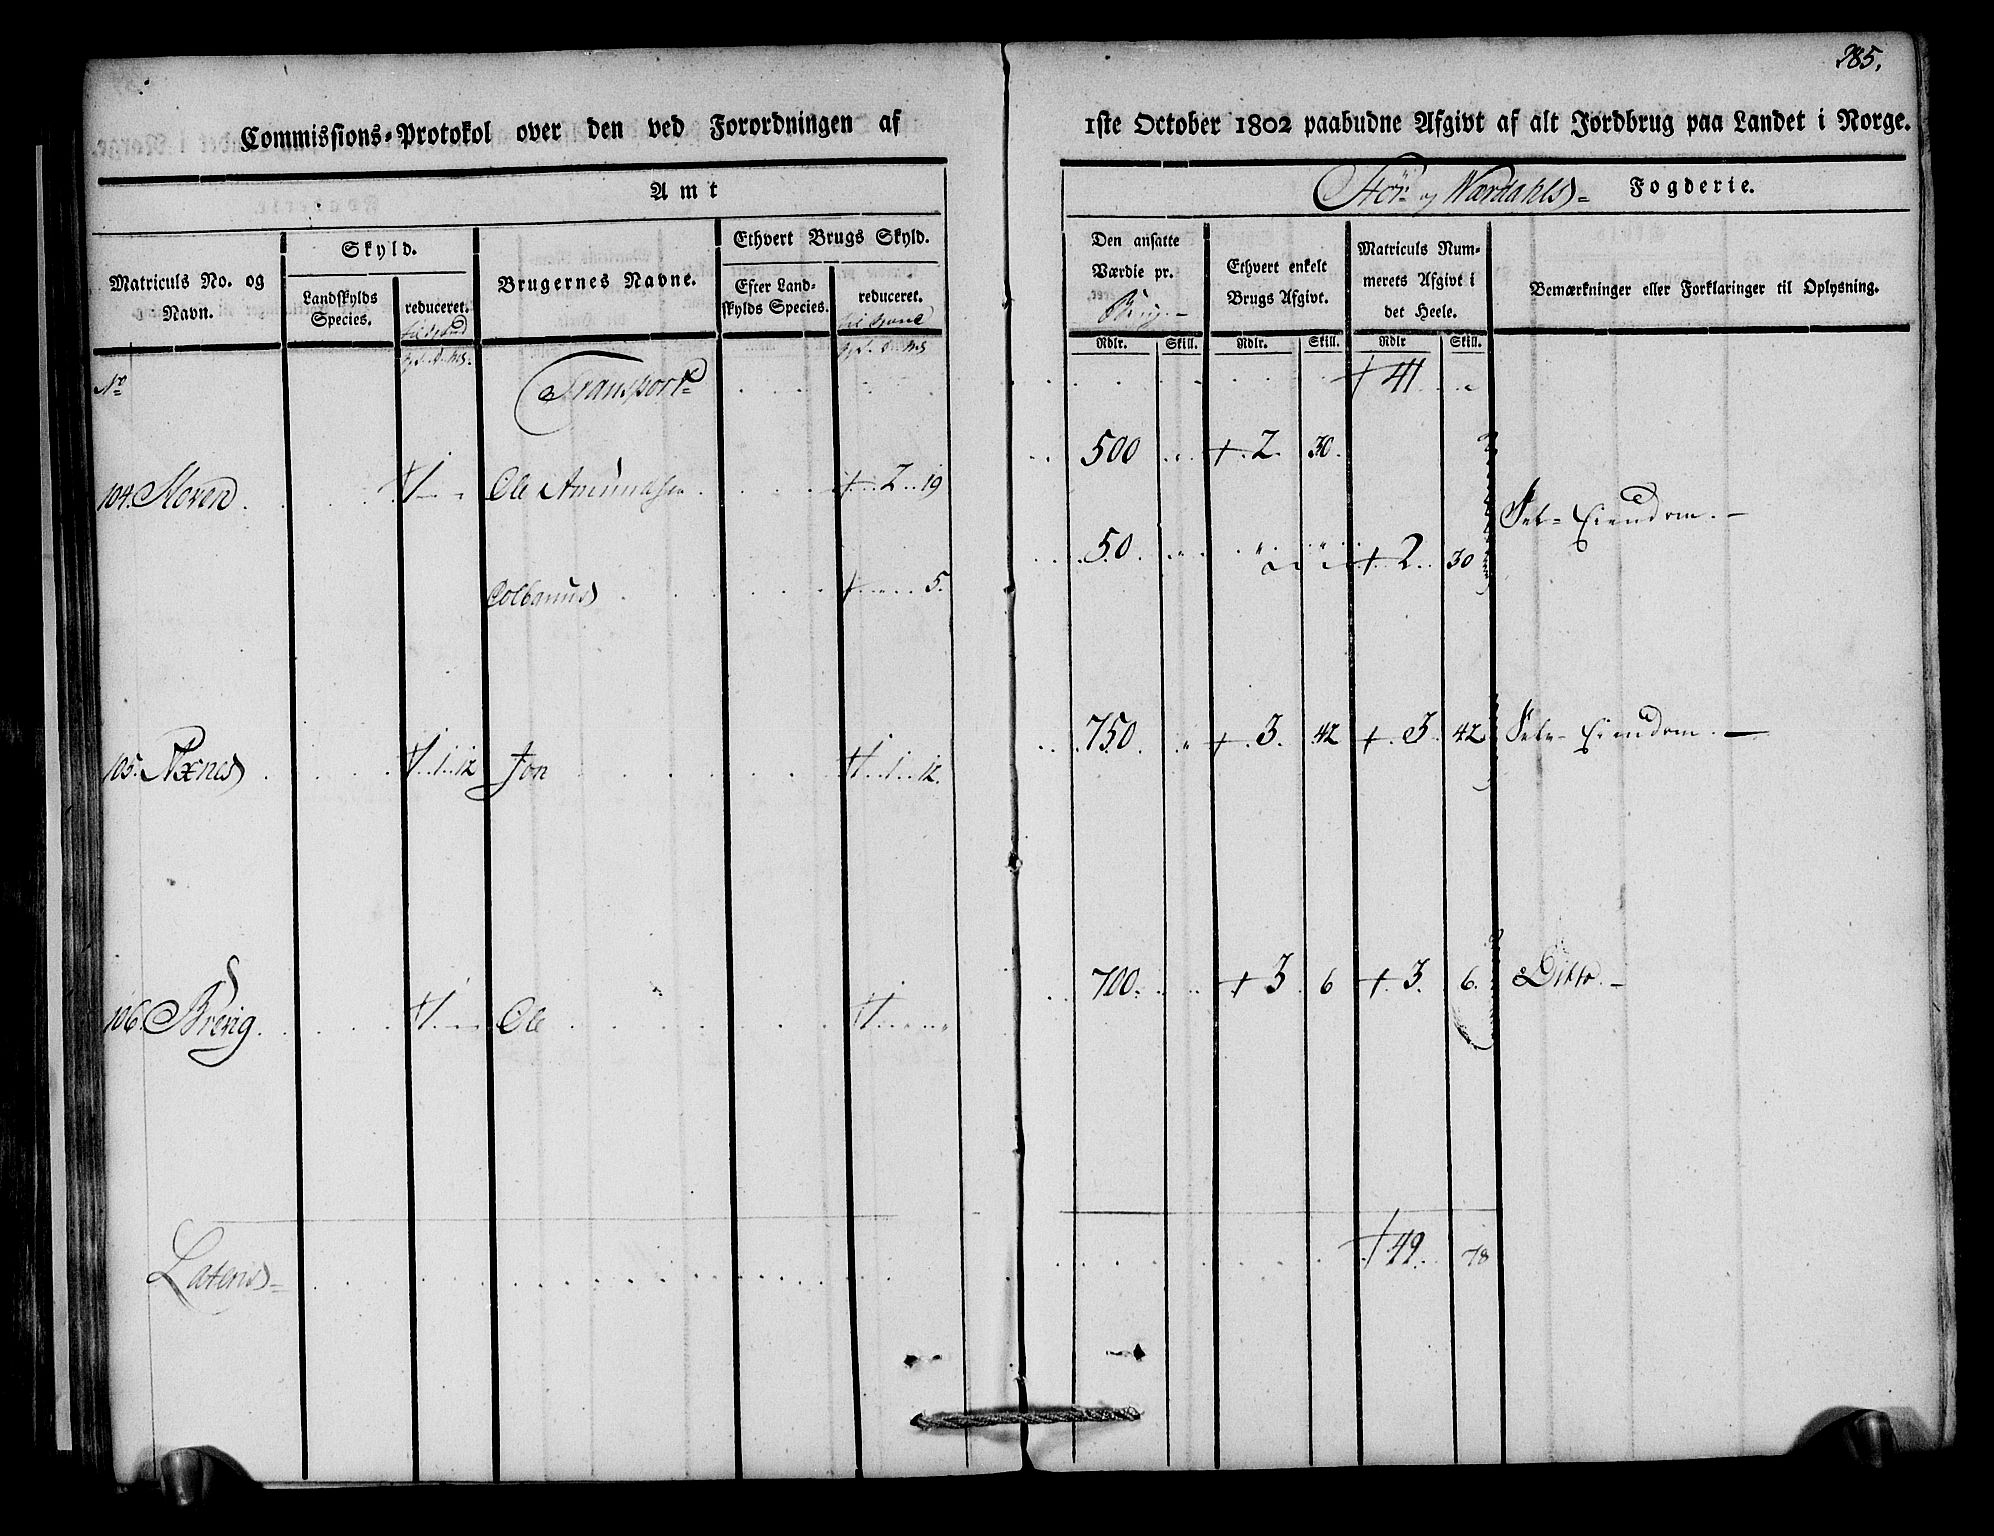 385.
Commissions-Protokol over den ved Forordningen af 1ste October 1802 paabudne Afgivt af alt Jordbrug paa Landet i Norge.
Amt
Stör- og Værdahls- Fogderie.
Matriculs No. og Navn.
Skyld.
Landskylds Species.
reduceret.
Brugernes Navne.
Ethvert Brugs Skyld.
Efter Landskylds Species.
reduceret.
Den ansatte Værdie pr. Brug.
Ethvert enkelt Brugs Afgivt.
Matriculs Nummerets Afgivt i det Heele.
Bemærkninger eller Forklaringer til Oplysning.
Rdlr. Skill. Rdlr. Skill. Rdlr Skill.
No Transport 41
104. Hoven 1 Ole Amundsen 2 19 500 2 30
Colbanus 5. 50 2 30 Selv-Eiendom.
105. Næxnes 1 1 12 Jon 1 1 12. 750 3 42 3 42 Selv-Eiendom.
106. Brevig 1 Ole 1 700 3 6 3 6 Ditto.
Lateris 49 78